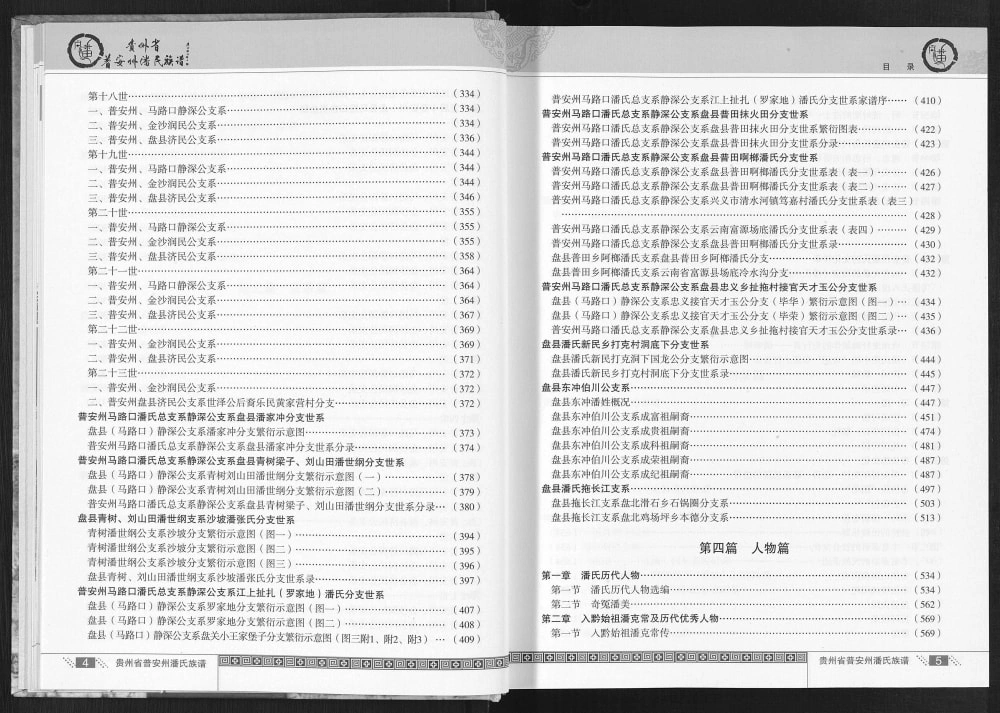 贵州省
普安州潘氏族谱
第十八世……(334)
一、普安州、马路口静深公支系……(334)
二、普安州、金沙润民公支系……(334)
三、普安州、盘县济民公支系……(336)
第十九世……(344)
一、普安州、马路口静深公支系……(344)
二、普安州、金沙润民公支系……(344)
三、普安州、盘县济民公支系……(346)
第二十世……(355)
一、普安州、马路口静深公支系……(355)
二、普安州、金沙润民公支系……(355)
三、普安州、盘县济民公支系……(358)
第二十一世……(364)
一、普安州、马路口静深公支系……(364)
二、普安州、金沙润民公支系……(364)
三、普安州、盘县济民公支系……(367)
第二十二世……(369)
一、普安州、金沙润民公支系……(369)
二、普安州、盘县济民公支系……(371)
第二十三世……(372)
一、普安州、金沙润民公支系……(372)
二、普安州盘县济民公支系世泽公后裔乐民黄家营村分支……(372)
普安州马路口潘氏总支系静深公支系盘县潘家冲分支世系
盘县(马路口)静深公支系潘家冲分支繁衍示意图……(373)
普安州马路口潘氏总支系静深公支系盘县潘家冲分支世系分录……(374)
普安州马路口潘氏总支系静深公支系盘县青树梁子、刘山田潘世纲分支世系
盘县(马路口)静深公支系青树刘山田潘世纲分支繁衍示意图(一)……(378)
盘县(马路口)静深公支系青树刘山田潘世纲分支繁衍示意图(二)……(379)
普安州马路口潘氏总支系静深公支系盘县青树梁子、刘山田潘世纲分支世系分录…(380)
盘县青树、刘山田潘世纲支系沙坡潘张氏分支世系
青树潘世纲公支系沙坡分支繁衍示意图(图一)……(394)
青树潘世纲公支系沙坡分支繁衍示意图(图二)……(395)
青树潘世纲公支系沙坡分支繁衍示意图(图三)……(396)
盘县青树、刘山田潘世纲支系沙坡潘张氏分支世系录……(397)
普安州马路口潘氏总支系静深公支系江上扯扎(罗家地)潘氏分支世系
盘县(马路口)静深公支系罗家地分支繁衍示意图(图一)……(407)
盘县(马路口)静深公支系罗家地分支繁衍示意图(图二)……(408)
盘县(马路口)静深公支系盘关小王家堡子分支繁衍示意图(图三附1、附2、附3)…(409)
4 贵州省普安州潘氏族谱
目 录
普安州马路口潘氏总支系静深公支系江上扯扎(罗家地)潘氏分支世系家谱序……(410)
普安州马路口潘氏总支系静深公支系盘县普田抹火田分支世系
普安州马路口潘氏总支系静深公支系盘县普田抹火田分支世系繁衍图表……(422)
普安州马路口潘氏总支系静深公支系盘县普田抹火田分支世系分录……(423)
普安州马路口潘氏总支系静深公支系盘县普田啊榔潘氏分支世系
普安州马路口潘氏总支系静深公支系盘县普田啊榔潘氏分支世系表(表一)……(426)
普安州马路口潘氏总支系静深公支系盘县普田啊榔潘氏分支世系表(表二)……(427)
普安州马路口潘氏总支系静深公支系兴义市清水河镇笃嘉村潘氏分支世系表(表三)
……(428)
普安州马路口潘氏总支系静深公支系云南富源场底潘氏分支世系表(表四)……(429)
普安州马路口潘氏总支系静深公支系盘县普田啊榔潘氏分支世系录……(430)
盘县普田乡阿榔潘氏支系盘县普田乡阿榔潘氏分支……(432)
盘县普田乡阿榔潘氏支系云南省富源县场底冷水沟分支……(432)
普安州马路口潘氏总支系静深公支系盘县忠义乡扯拖村接官天才玉公分支世系
盘县(马路口)静深公支系忠义接官天才玉公分支(毕华)繁衍示意图(图一)…(434)
盘县(马路口)静深公支系忠义接官天才玉公分支(毕荣)繁衍示意图(图二)…(435)
普安州马路口潘氏总支系静深公支系盘县忠义乡扯拖村接官天才玉公分支世系录…(436)
盘县潘氏新民乡打克村洞底下分支世系
盘县潘氏新民打克洞下国龙公分支繁衍示意图……(444)
盘县潘氏新民乡打克村洞底下分支世系录……(445)
盘县东冲伯川公支系……(447)
盘县东冲潘姓概况……(447)
盘县东冲伯川公支系成富祖嗣裔……(451)
盘县东冲伯川公支系成贵祖嗣裔……(474)
盘县东冲伯川公支系成科祖嗣裔……(481)
盘县东冲伯川公支系成荣祖嗣裔……(487)
盘县东冲伯川公支系成纪祖嗣裔……(487)
盘县潘氏拖长江支系……(497)
盘县拖长江支系盘北滑石乡石锅圈分支系……(503)
盘县拖长江支系盘北鸡场坪乡本德分支系……(513)
第四篇 人物篇
第一章 潘氏历代人物……(534)
第一节 潘氏历代人物选编……(534)
第二节 奇冤潘美……(562)
第二章 入黔始祖潘克常及历代优秀人物……(569)
第一节 入黔始祖潘克常传……(569)
贵州省普安州潘氏族谱 5